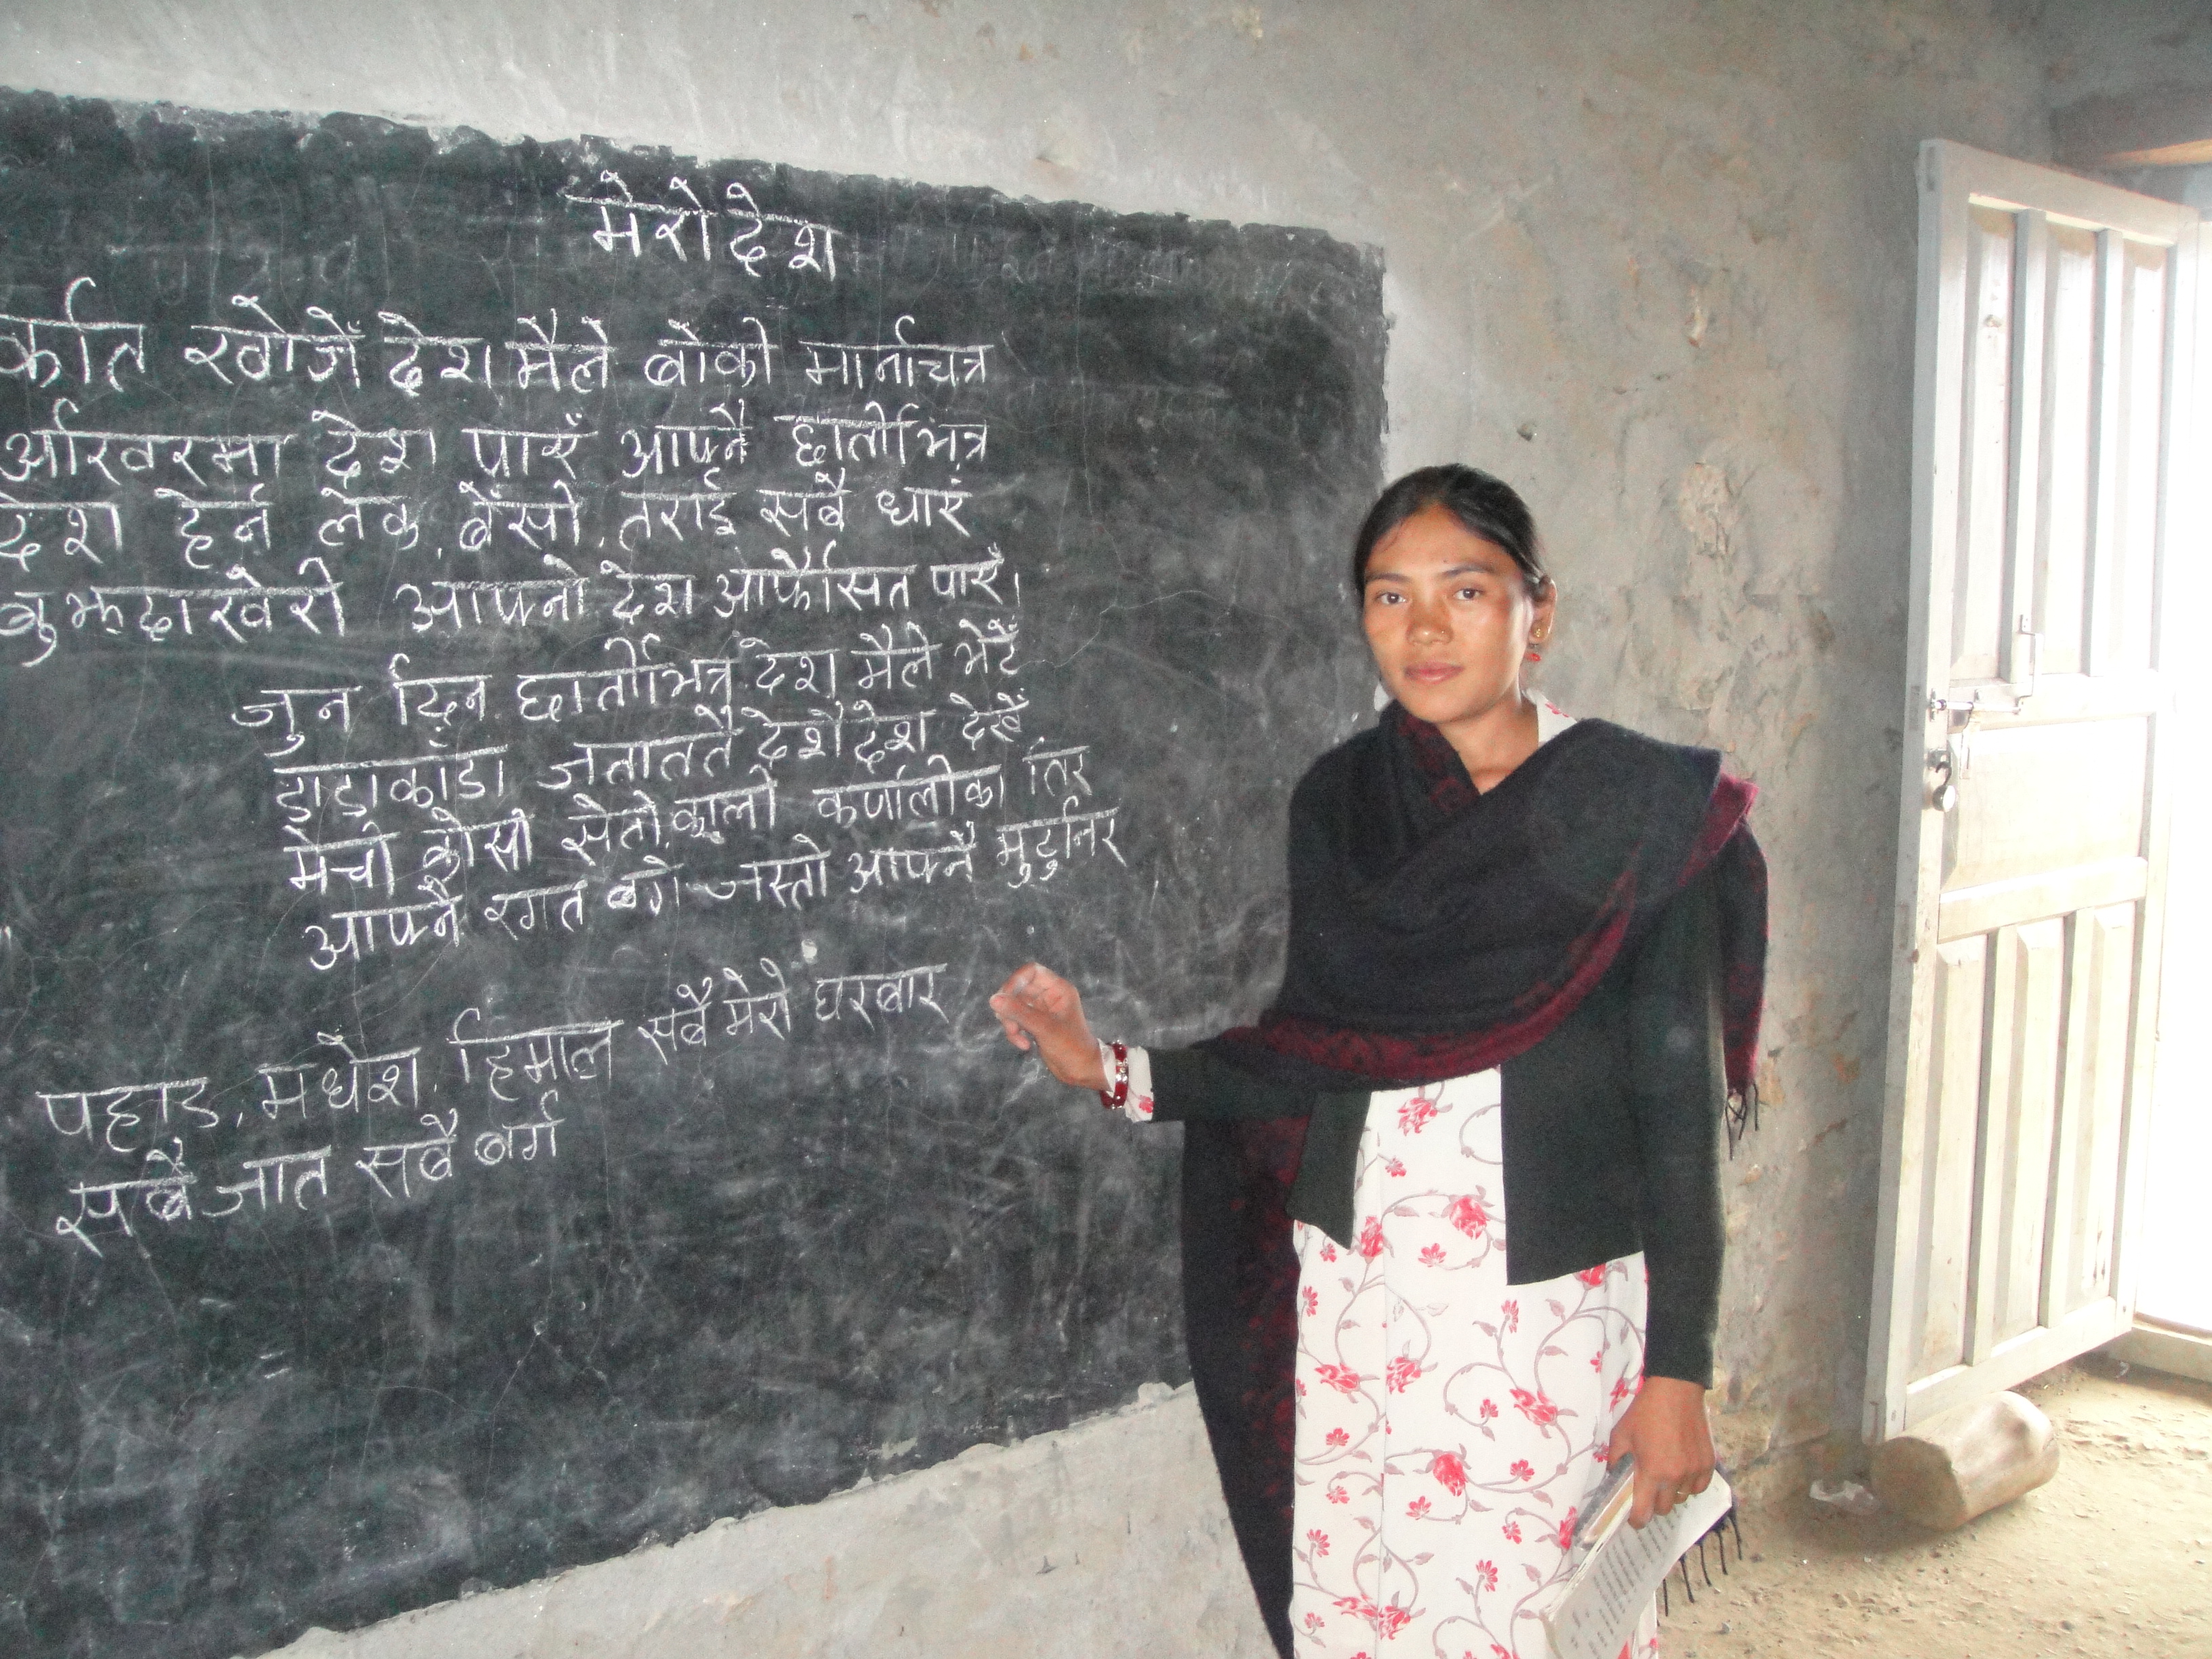 मेरो देश
कति खोजेँ देश मैले बोकी मानचित्र
आखिरमा देश पाएँ आफ्नै छातीभित्र
देश हेर्न लेक, बेँसी, तराई सबै धाएं
बुझ्दाखेरी आफ्नो देश आफैसित पाएँ।
जुन दिन छातीभित्र देश मैले भेटेँ
डाडाकाँडा जताततै देशैदेश देखेँ
मेची कोसी सेती, काली कर्णालीका तिर
आफ्नै रगत बगे जस्तो आफ्नै मुटुनिर
पहाड, मधेश, हिमाल सबै मेरो घरबार
सबै जात सबै बर्ग